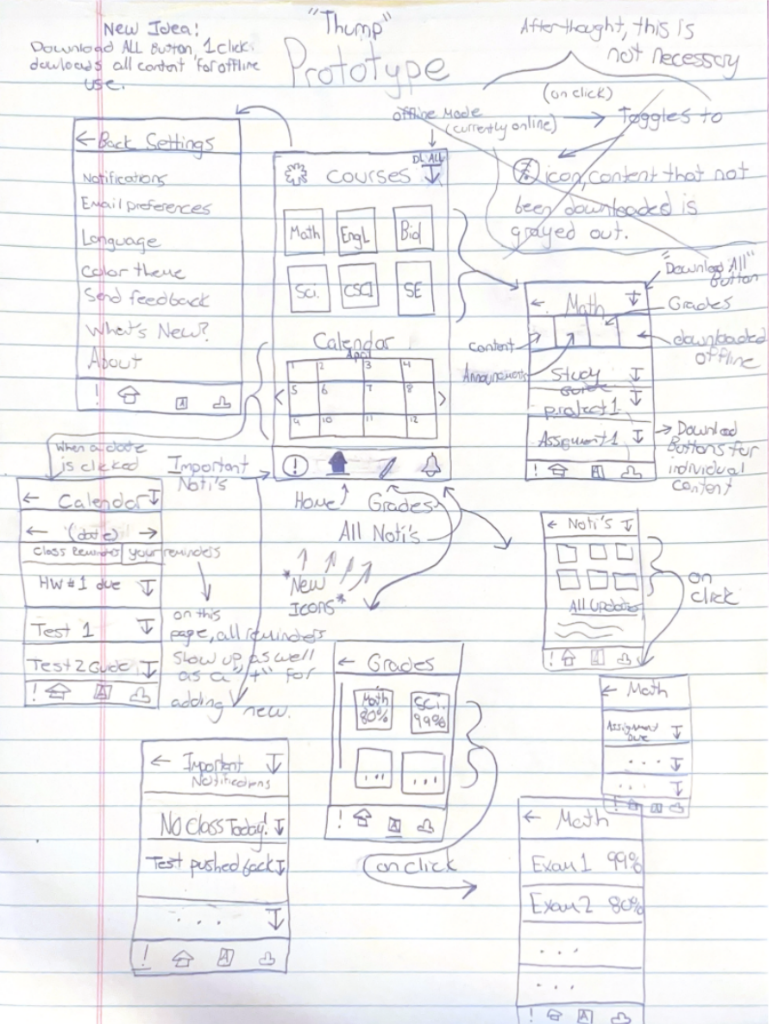 New Idea!
Download ALL Button, 1 click:
downloads all content for offline
use.
"Thump"
Prototype
Afterthought, this is
not necessary
(on click)
offline Mode
(currently online)
Toggles to
icon, content that not
been downloaded is
grayed out.
← Back Settings
Notifications
Email preferences
Language
Color theme
Send feedback
What's New?
About
! A
DL ALL
Courses
Math Engl Bio
Sci. CSCI SE
Calendar
April
1 2 3 4
< 5 6 7 8 >
9 10 11 12
!
Important
Noti's
Home Grades
All Noti's
*New
Icons*
"Download All"
Button
← Math
Grades
Content
downloaded
offline
Study
Guide
project 1
Assignment 1
! A
Download
Buttons for
individual
content
When a date
is clicked
← Calendar
← (date) →
Class Reminders your reminders
HW #1 due
Test 1
Test 2 Guide
! A
on this
page, all reminders
show up as well
as a "+" for
adding new.
← Noti's
All Updates
! A
on
click
← Math
Assignment
Due
...
...
! A
← Grades
Math
80%
Sci.
99%
... ...
! A
on click
← Important
Notifications
No Class Today!
Test pushed back
...
! A
← Math
Exam 1 99%
Exam 2 80%
...
...
! A